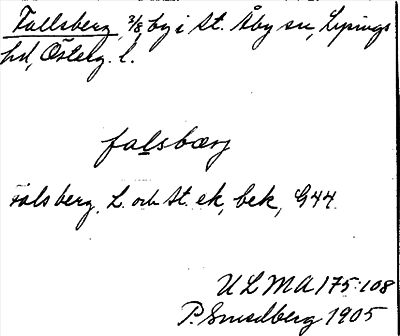 Fallsberg, 2/8, by i St. Åby sn, Lysings
hd, Österg. l.
falsbærj
Falsberg, L. och St. ek, bek, G44
ULMA 175:108
P. Smedberg 1905